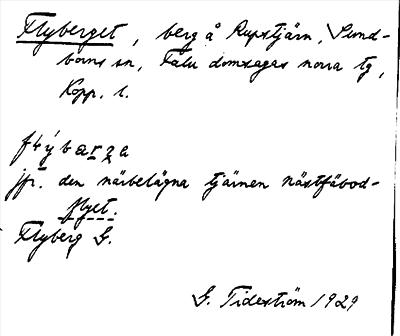 Flyberget, berg å Rupstjärn, Sund-
borns sn, Falu domsagas norra tg,
Kopp. l.
jfr. den närbelägna tjärnen Nästfäbod-
flyet.
Flyberg G.
G. Tideström 1929